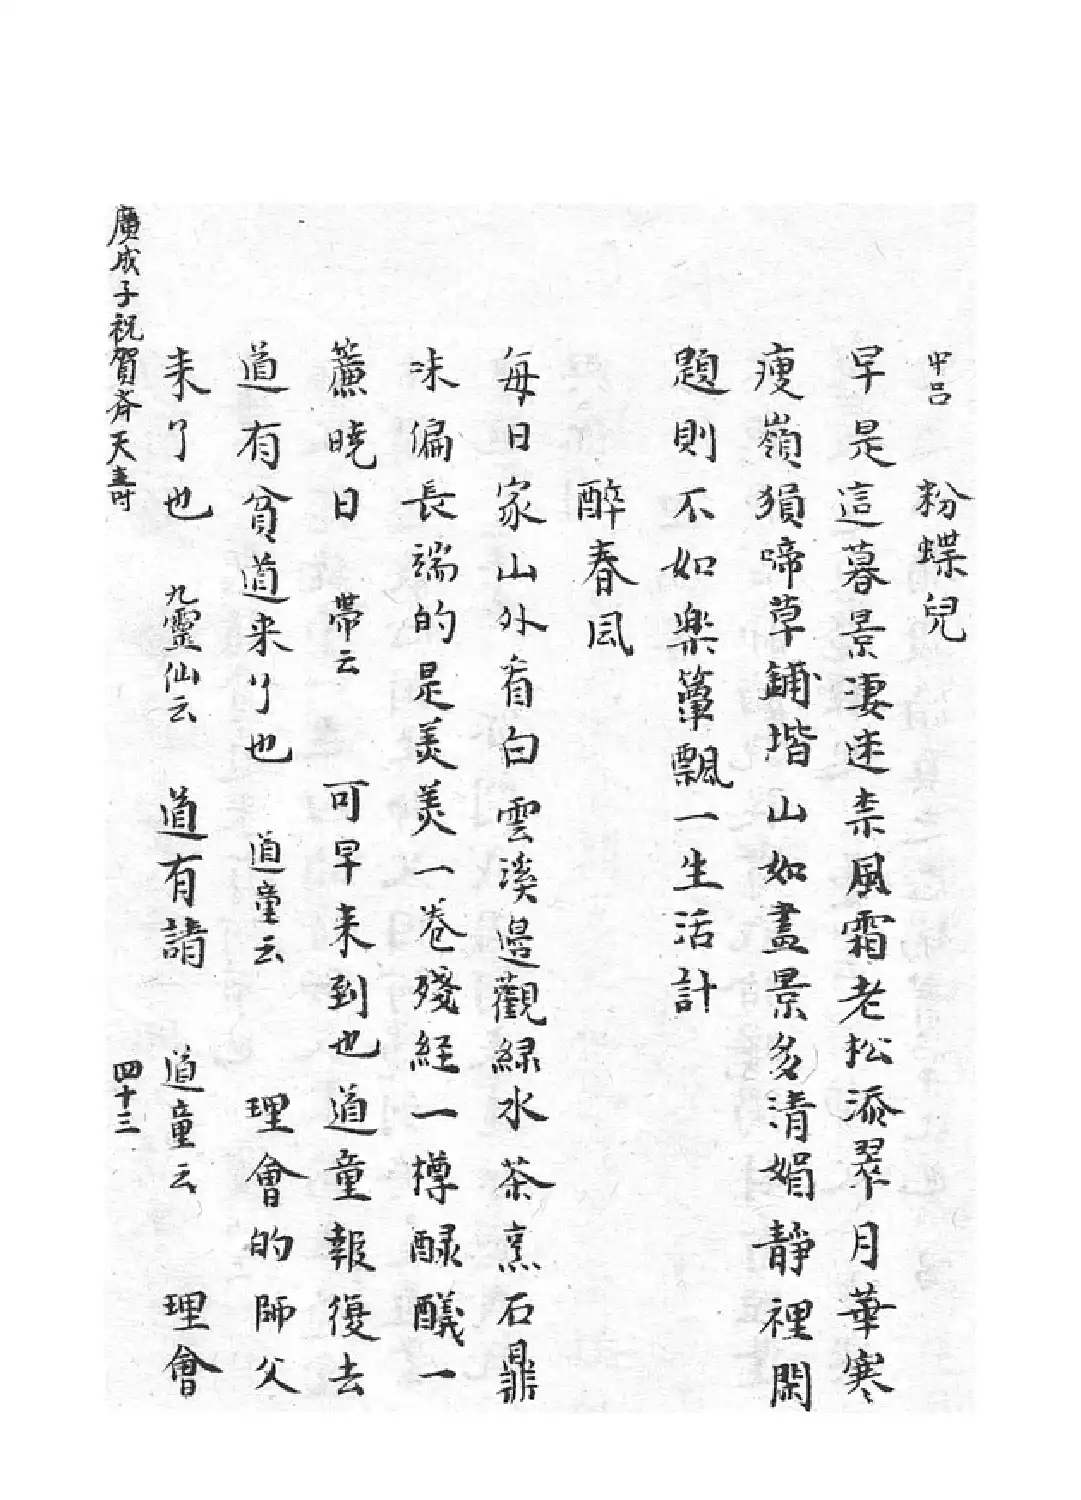 中呂　粉蝶兒
早是這暮景淒迷柰風霜老松添翠月華寒
瘦嶺猿啼草鋪堦山如畫景多清媚靜裡閑
題則不如樂簞瓢一生活計
醉春風
每日家山外看白雲溪邊觀綠水茶烹石鼎
味偏長端的是美美一卷殘経一樽醁醾一
簾曉日　帶云　可早来到也道童報復去
道有貧道来了也　道童云　理會的師父
来了也　九靈仙云　道有請　道童云　理會
廣成子祝賀斉天壽　四十三